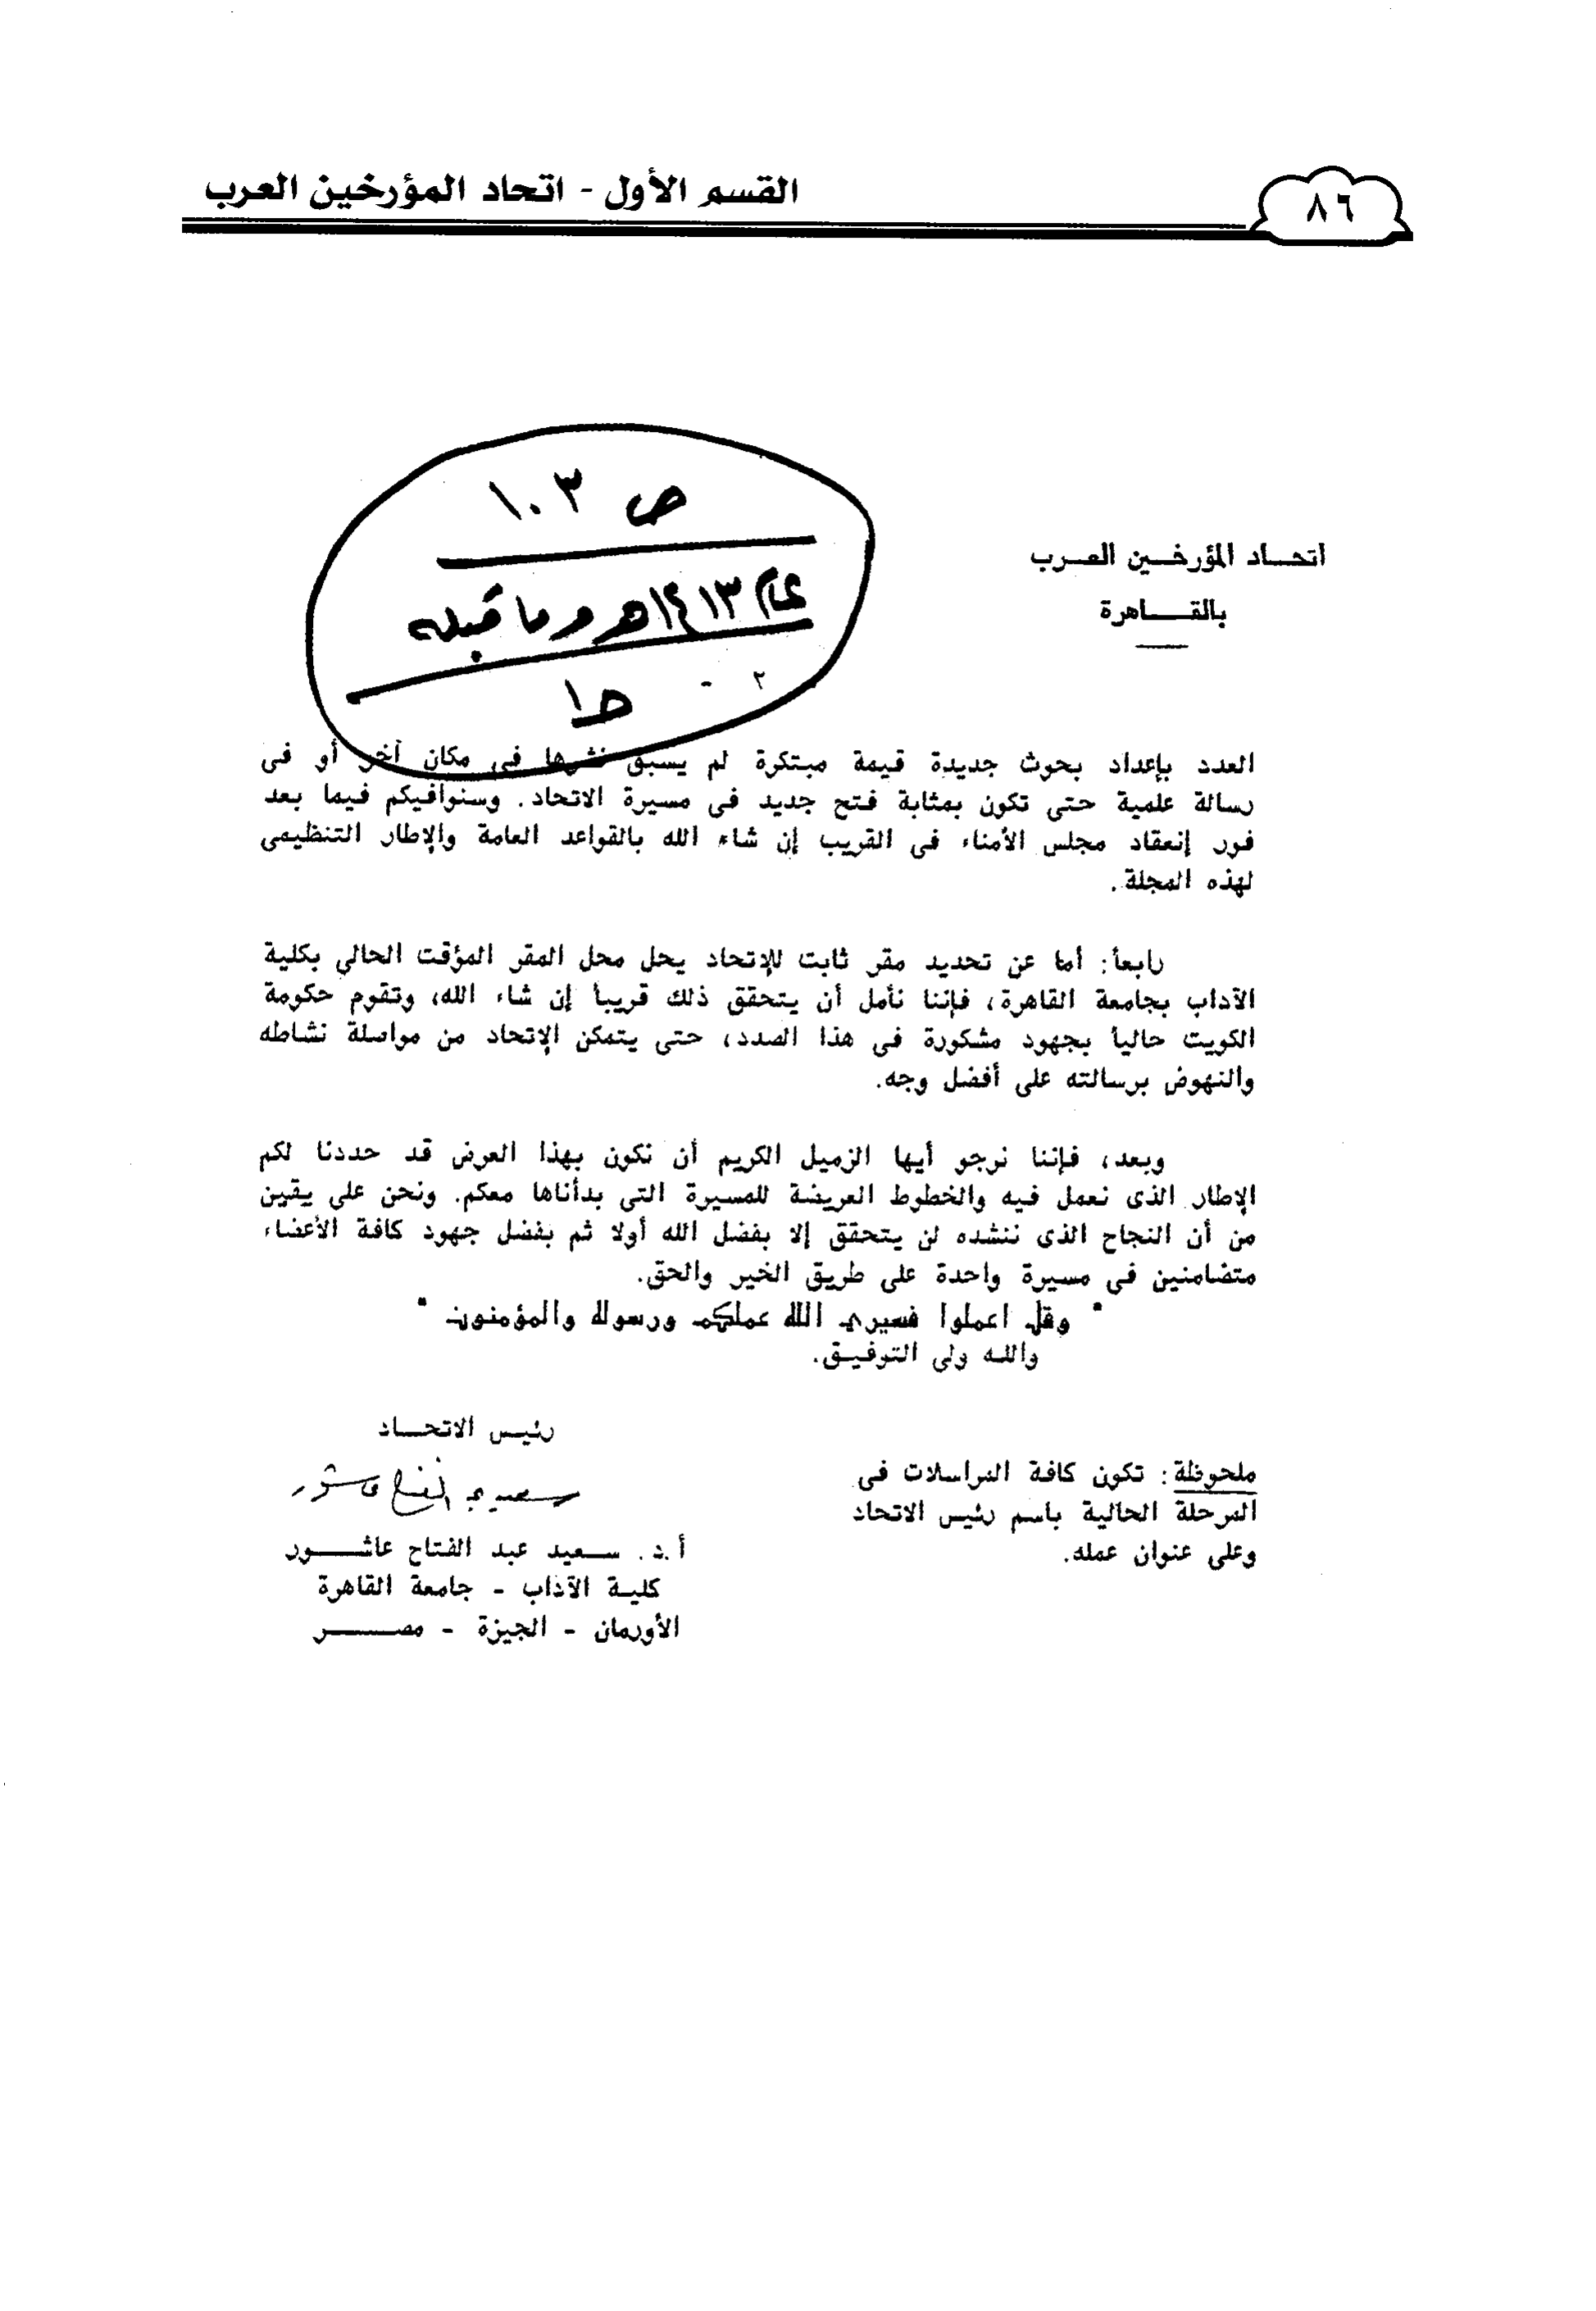 ٨٦
القسم الأول - اتحاد المؤرخين العرب
ص ١٠٣
عام ١٤١٣هـ وما قبله
ط١
اتحـــاد المؤرخـــين العـــرب
بالقـــــاهرة
- ٢
العدد بإعداد بحوث جديدة قيمة مبتكرة لم يسبق نشرها فى مكان آخر أو فى
رسالة علمية حتى تكون بمثابة فتح جديد فى مسيرة الاتحاد. وسنوافيكم فيما بعد
فور إنعقاد مجلس الأمناء فى القريب إن شاء الله بالقواعد العامة والإطار التنظيمى
لهذه المجلة.
رابعاً: أما عن تحديد مقر ثابت للإتحاد يحل محل المقر المؤقت الحالي بكلية
الآداب بجامعة القاهرة، فإننا نأمل أن يتحقق ذلك قريباً إن شاء الله، وتقوم حكومة
الكويت حالياً بجهود مشكورة فى هذا الصدد، حتى يتمكن الإتحاد من مواصلة نشاطه
والنهوض برسالته على أفضل وجه.
وبعد، فإننا نرجو أيها الزميل الكريم أن نكون بهذا العرض قد حددنا لكم
الإطار الذى نعمل فيه والخطوط العريضة للمسيرة التى بدأناها معكم. ونحن على يقين
من أن النجاح الذى ننشده لن يتحقق إلا بفضل الله أولا ثم بفضل جهود كافة الأعضاء
متضامنين فى مسيرة واحدة على طريق الخير والحق.
" وقل اعملوا فسيرى الله عملكم ورسوله والمؤمنون "
والله ولى التوفيـق.
رئيـس الاتحـــاد
سعيد عبد الفتاح عاشور
ملحوظة: تكون كافة المراسلات فى
المرحلة الحالية باسم رئيس الاتحاد
وعلى عنوان عمله.
أ.د. ســعيد عبد الفتاح عاشـــــور
كليـة الآداب - جامعة القاهرة
الأورمان - الجيزة - مصــــــر